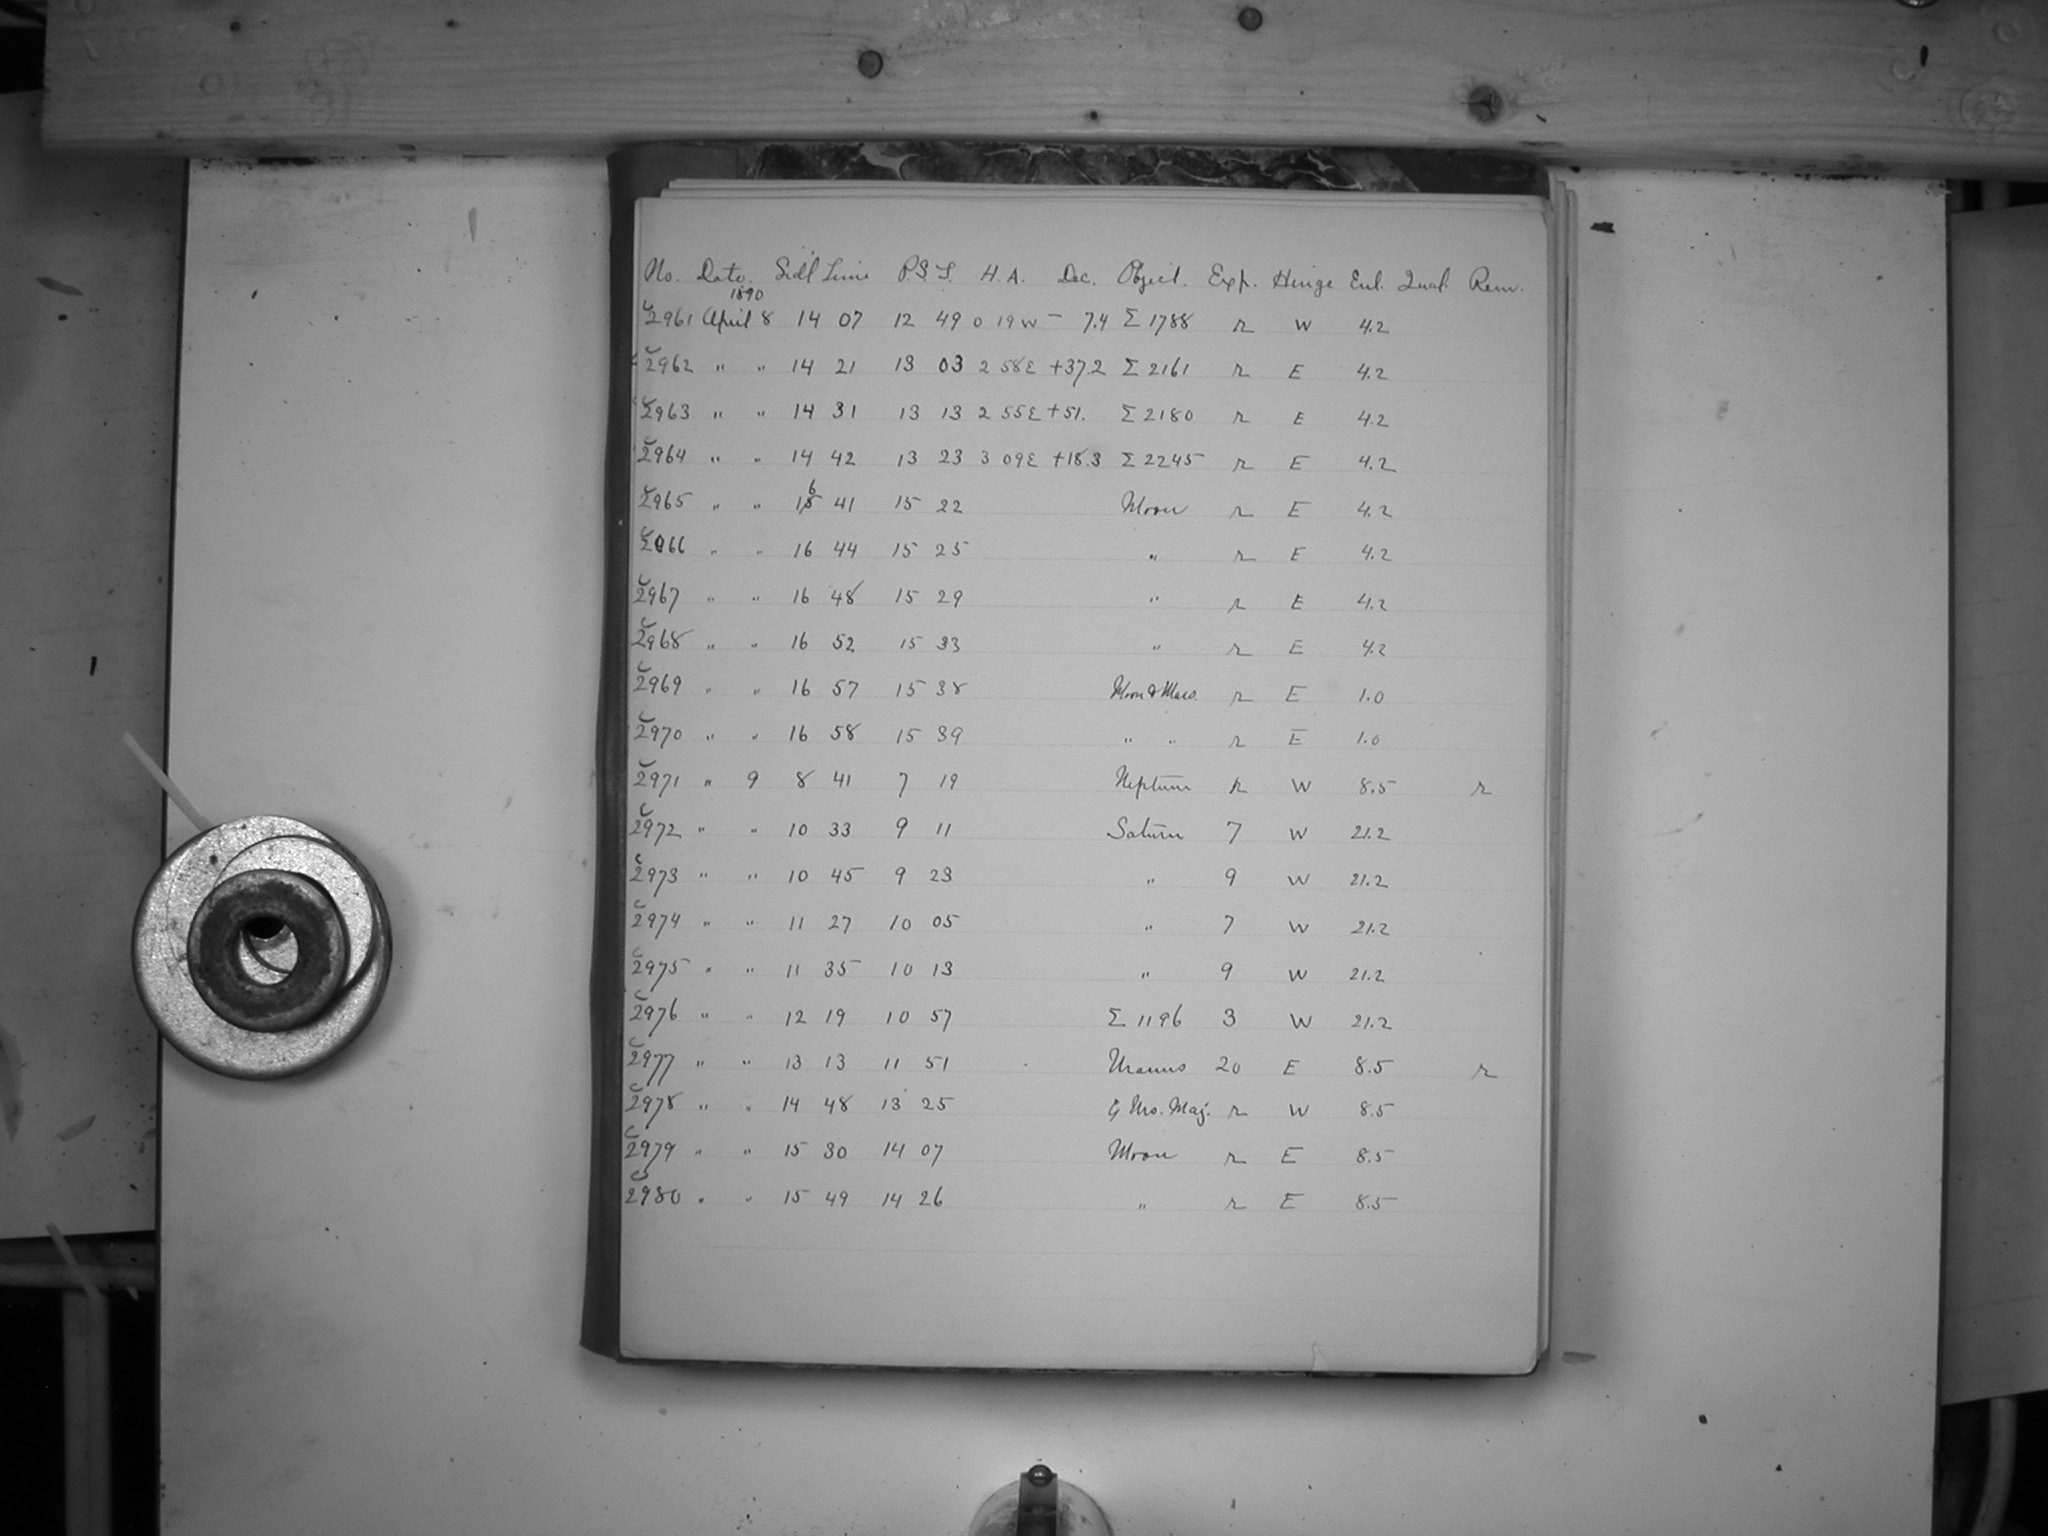 No. Date. Sidl Time P.S.T. H.A. Dec. Object. Exp. Hinge Enl. Qual. Rem.
1890
C 2961 April 8 14 07 12 49 0 19 W - 7.4 Σ 1788 r W 4.2
C 2962 " " 14 21 13 03 2 58 E +37.2 Σ 2161 r E 4.2
C 2963 " " 14 31 13 13 2 55 E +51. Σ 2180 r E 4.2
C 2964 " " 14 42 13 23 3 09 E +18.3 Σ 2245 r E 4.2
C 2965 " " 16 41 15 22 Moon r E 4.2
C 2966 " " 16 44 15 25 " r E 4.2
C 2967 " " 16 48 15 29 " r E 4.2
C 2968 " " 16 52 15 33 " r E 4.2
C 2969 " " 16 57 15 38 Moon & Mars. r E 1.0
C 2970 " " 16 58 15 39 " " r E 1.0
C 2971 " 9 8 41 7 19 Neptune r W 8.5 r
C 2972 " " 10 33 9 11 Saturn 7 W 21.2
C 2973 " " 10 45 9 23 " 9 W 21.2
C 2974 " " 11 27 10 05 " 7 W 21.2
C 2975 " " 11 35 10 13 " 9 W 21.2
C 2976 " " 12 19 10 57 Σ 1196 3 W 21.2
C 2977 " " 13 13 11 51 Uranus 20 E 8.5 r
C 2978 " " 14 48 13 25 ζ Urs. Maj. r W 8.5
C 2979 " " 15 30 14 07 Moon r E 8.5
C 2980 " " 15 49 14 26 " r E 8.5